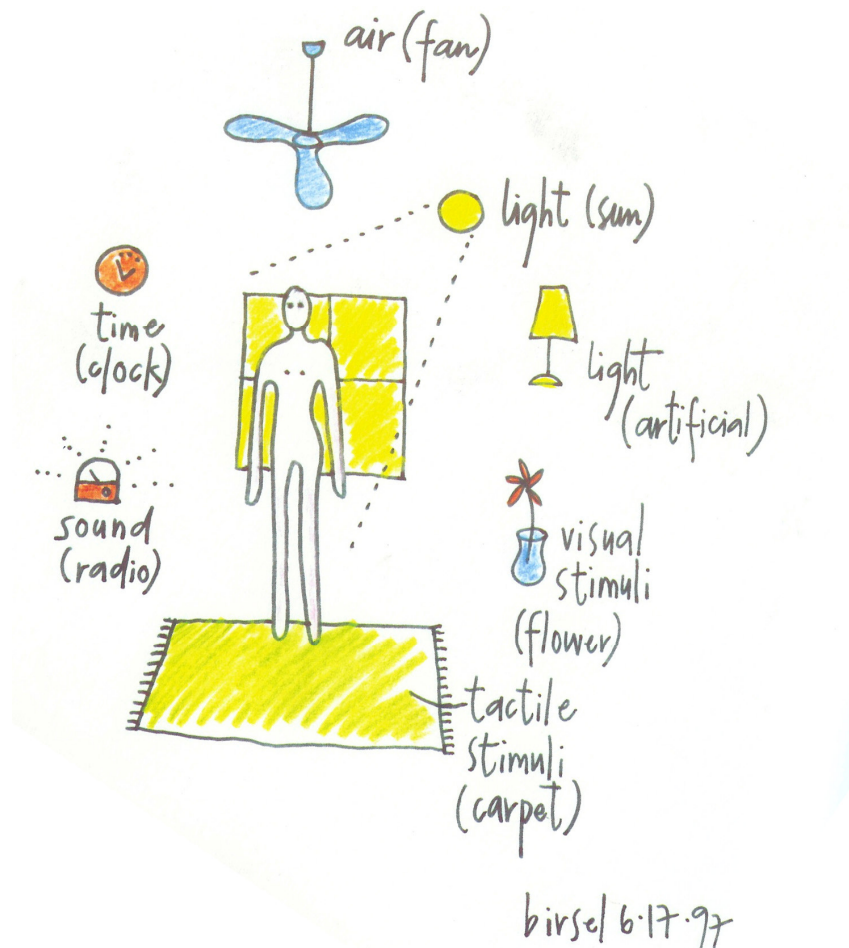 air (fan)
light (sun)
time
(clock)
light
(artificial)
sound
(radio)
visual
stimuli
(flower)
tactile
stimuli
(carpet)
birsel 6·17·97